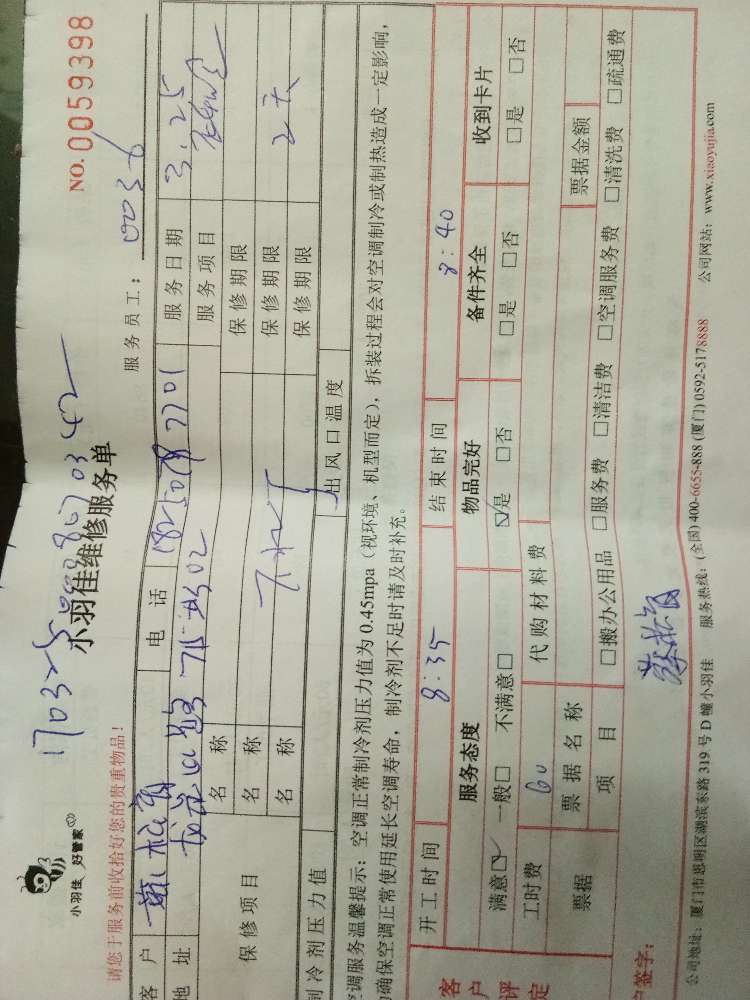 小羽佳 好管家
NO.0059398
小羽佳维修服务单
请您于服务前收拾好您的贵重物品！
服务员工： 0036
客户 电话 服务日期 3.25
地址 服务项目
保修项目 名称 保修期限
名称 保修期限 2天
名称 保修期限
制冷剂压力值 出风口温度
空调服务温馨提示：空调正常制冷剂压力值为0.45mpa（视环境、机型而定），拆装过程会对空调制冷或制热造成一定影响，
确保空调正常使用延长空调寿命，制冷剂不足时请及时补充。
开工时间 8:35 结束时间 8:40
客户评定 服务态度 物品完好 备件齐全 收到卡片
满意☑ 一般□ 不满意□ ☑是 □否 □是 □否 □是 □否
工时费 60 代购材料费
票据 票据名称 票据金额
项目 □搬办公用品 □服务费 □清洁费 □空调服务费 □清洗费 □疏通费
户签字：
公司地址：厦门市思明区湖滨东路319号D幢小羽佳 服务热线：(全国)400-6655-888 (厦门)0592-5178888 公司网站：www.xiaoyujia.com